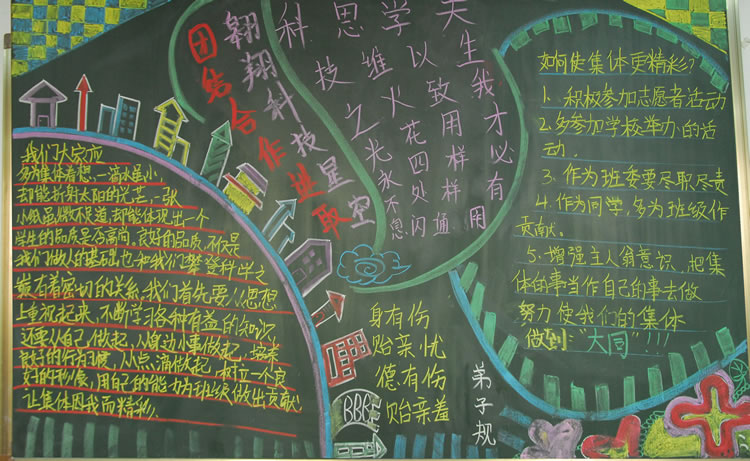 我们大家应
多为集体着想,一滴水虽小,
去能折射太阳的光芒,一张
小纸虽微不足道,却能体现出一个
学生的品质是否高尚。良好的品质,不仅是
我们做人的基础,也和我们攀登科学之
巅有着密切的关系。我们首先要从思想
上重视起来,不断学习各种有益的知识,
还要从自己做起,从身边小事做起,培养
良好的行为习惯,从点滴做起,树立一个良
好的形像,用自己的能力为班级做出贡献
让集体因我而精彩。
团结合作进取
翱翔科技星空
科技之光永不息
思维火花四处闪
学以致用样样通
天生我才必有用
身有伤
贻亲忧
德有伤
贻亲羞
弟子规
BBG
如何使集体更精彩?
1、积极参加志愿者活动
2.多参加学校举办的活
动.
3、作为班委要尽职尽责
4、作为同学,多为班级作
贡献.
5、增强主人翁意识,把集
体的事当作自己的事去做
努力使我们的集体
做到:"大同"!!!